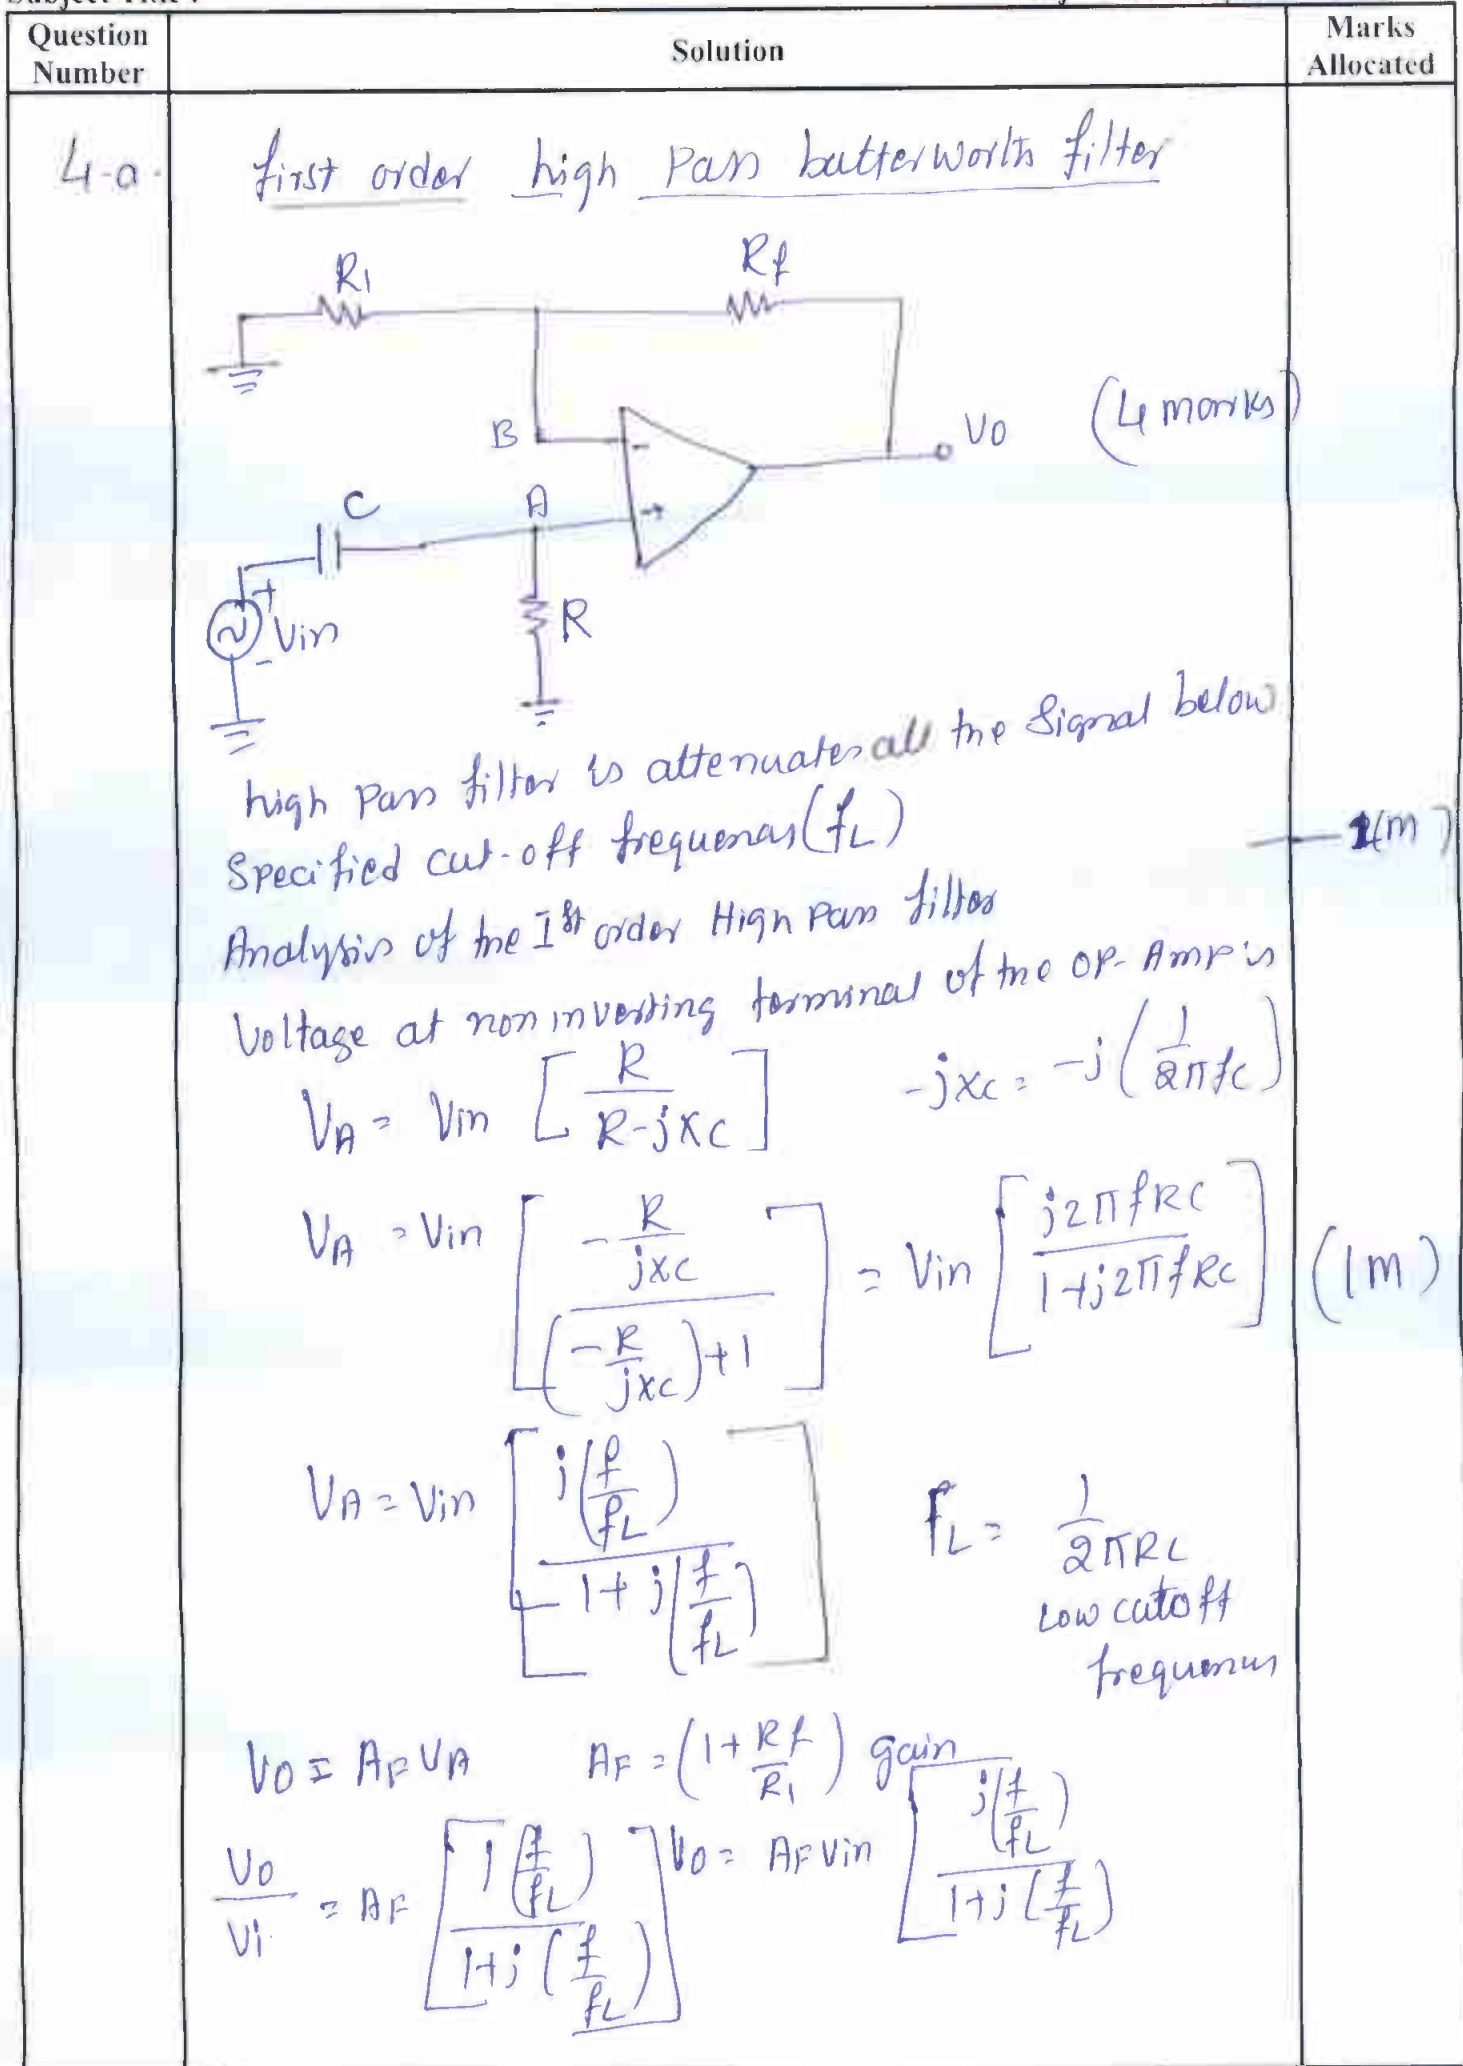 Question Number
Solution
Marks Allocated
4-a.
first order high Pass butterworth filter
R1
Rf
B
-
V0
(4 marks)
C
A
+
+
Vin
-
R
high Pass filter is attenuates all the Signal below
Specified cut-off frequencies (fL)
1(m)
Analysis of the Ist order High Pass filter
Voltage at non inverting terminal of the OP-Amp is
VA = Vin [R / (R-jXC)]   -jxc = -j(1 / 2πfC)
VA = Vin [(-R/jxc) / ((-R/jxc)+1)] = Vin [j2πfRC / (1+j2πfRC)]   (1M)
VA = Vin [j(f/fL) / (1+j(f/fL))]   fL = 1 / 2πRC
Low cutoff
V0 = AF VA   AF = (1+Rf/R1) gain
V0/Vi = AF [j(f/fL) / (1+j(f/fL))]   V0 = AF Vin [j(f/fL) / (1+j(f/fL))]